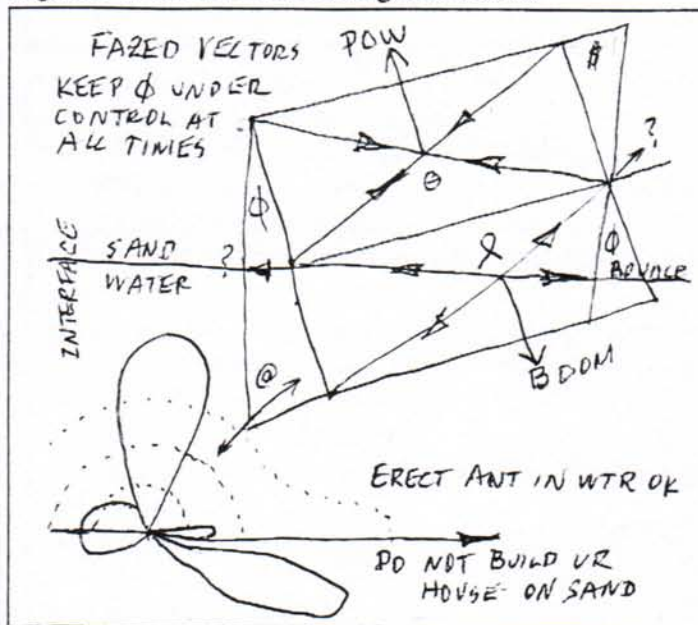 FAZED VECTORS
KEEP ϕ UNDER
CONTROL AT
ALL TIMES
POW
$
?
θ
ϕ
INTERFACE
SAND
WATER
?
ϕ
BOUNCE
BOOM
@
ERECT ANT IN WTR OK
DO NOT BUILD UR
HOUSE ON SAND